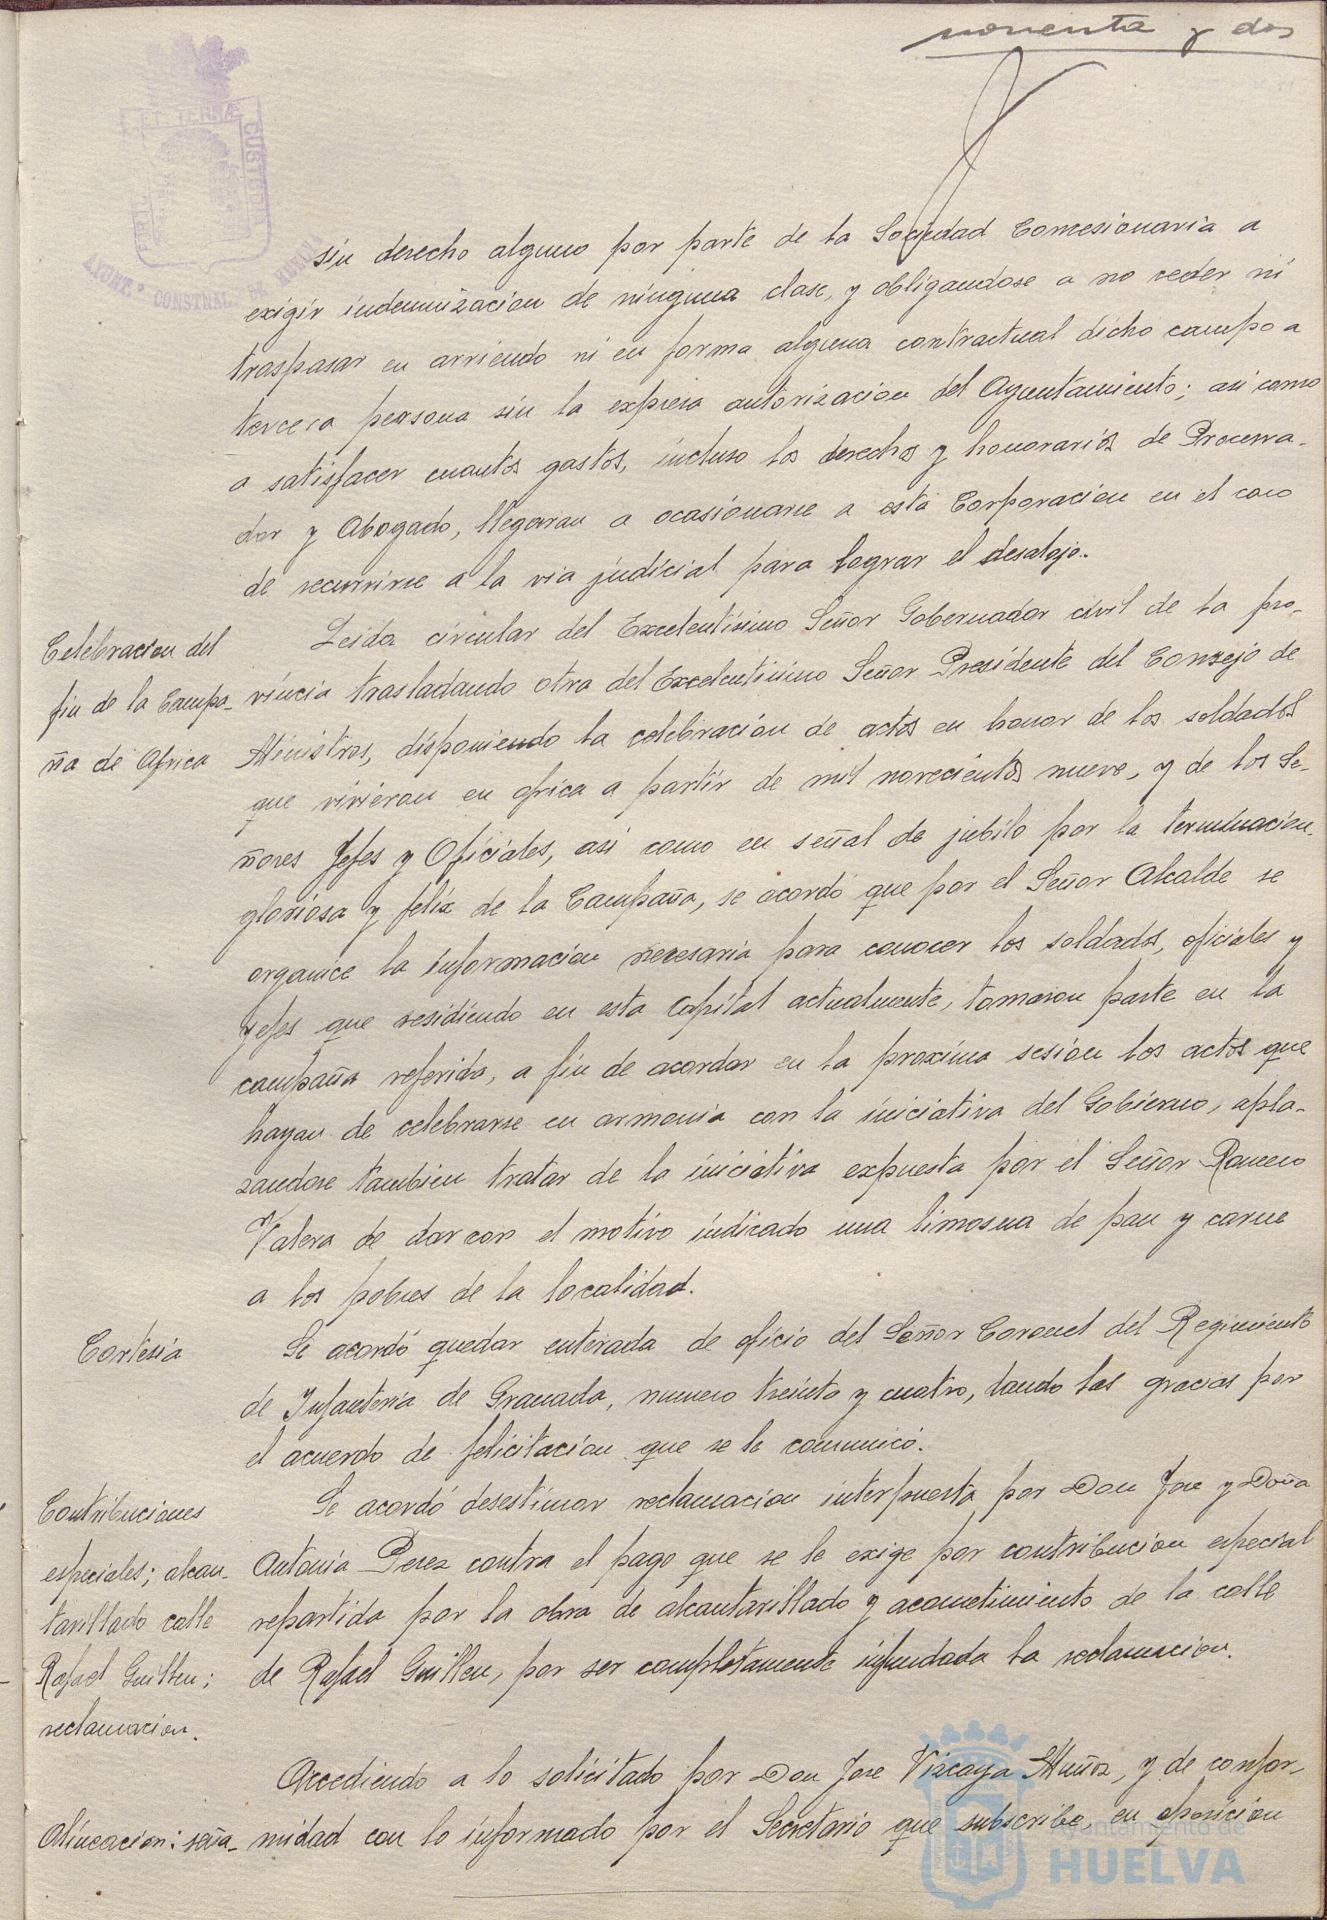 noventa y dos
ET TERRÆ
CUSTODIA
AYUNT.º CONSTNAL. DE HUELVA
sin derecho alguno por parte de la Sociedad Concesionaria a
exigir indemnizacion de ninguna clase, y obligandose a no ceder ni
traspasar en arriendo ni en forma alguna contractual dicho campo a
tercera persona sin la expresa autorizacion del Ayuntamiento; asi como
a satisfacer cuantos gastos, incluso los derechos y honorarios de Procura-
dor y Abogado, llegaran a ocasionarse a esta Corporacion en el caso
de recurrirse a la via judicial para lograr el desalojo.
Celebracion del
fin de la Campa-
ña de Africa
Leida circular del Excelentisimo Señor Gobernador civil de la pro-
vincia trasladando otra del Excelentisimo Señor Presidente del Consejo de
Ministros, disponiendo la celebracion de actos en honor de los soldados
que vivieran en africa a partir de mil novecientos nueve, y de los Se-
ñores Jefes y Oficiales, asi como en señal de jubilo por la terminacion
gloriosa y feliz de la Campaña, se acordó que por el Señor Alcalde se
organice la informacion necesaria para conocer los soldados, oficiales y
jefes que residiendo en esta Capital actualmente, tomaron parte en la
campaña referida, a fin de acordar en la proxima sesion los actos que
hayan de celebrarse en armonia con la iniciativa del Gobierno, apla-
zandose tambien tratar de la iniciativa expuesta por el Señor Romero
Valera de dar con el motivo indicado una limosna de pan y carne
a los pobres de la localidad.
Cortesia
Se acordó quedar enterada de oficio del Señor Coronel del Regimiento
de Infanteria de Granada, numero treinta y cuatro, dando las gracias por
el acuerdo de felicitacion que se le comunicó.
Contribuciones
especiales; alcan-
tarillado calle
Rafael Guillen;
reclamacion.
Se acordó desestimar reclamacion interpuesta por Don Jose y Doña
Antonia Perez contra el pago que se le exige por contribucion especial
repartida por la obra de alcantarillado y acometimiento de la calle
de Rafael Guillen, por ser completamente infundada la reclamacion.
Alineacion: seña-
Accediendo a lo solicitado por Don Jose Vizcaya Muñoz, y de confor-
midad con lo informado por el Secretario que subscribe, en oposicion
Ayuntamiento de
HUELVA